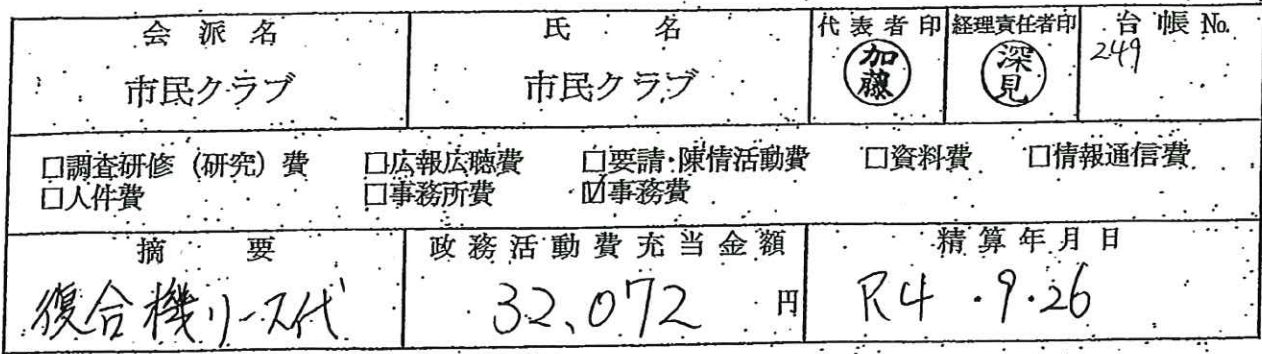 会派名 氏名 代表者印 経理責任者印 台帳No.
市民クラブ 市民クラブ 加藤 深見 249
□調査研修(研究)費 □広報広聴費 □要請・陳情活動費 □資料費 □情報通信費
□人件費 □事務所費 ☑事務費
摘要 政務活動費充当金額 精算年月日
復合機リース代 32,072円 R4.9.26